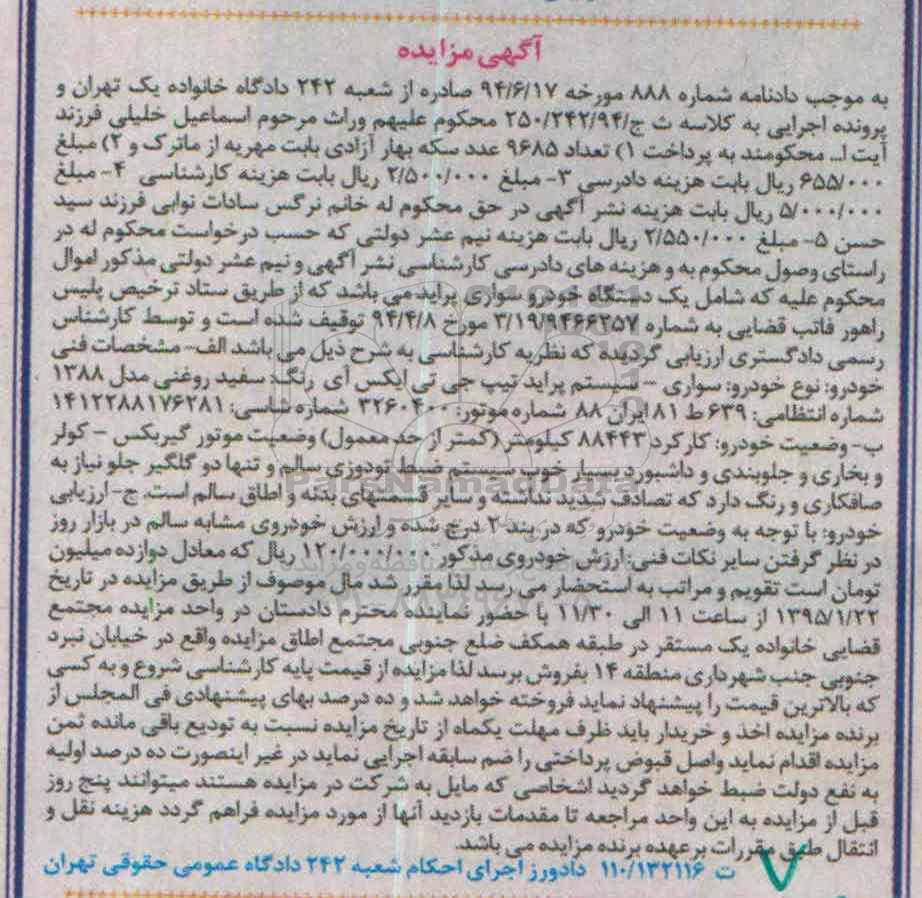 آگهی مزایده
به موجب دادنامه شماره ۸۸۸ مورخه ۹۴/۶/۱۷ صادره از شعبه ۲۴۲ دادگاه خانواده یک تهران و
پرونده اجرایی به کلاسه ث ج/۲۵۰/۲۴۲/۹۴ محکوم علیهم وراث مرحوم اسماعیل خلیلی فرزند
آیت ا... محکومند به پرداخت ۱) تعداد ۹۶۸۵ عدد سکه بهار آزادی بابت مهریه از ماترک و ۲) مبلغ
۶۵۵/۰۰۰ ریال بابت هزینه دادرسی ۳- مبلغ ۲/۵۰۰/۰۰۰ ریال بابت هزینه کارشناسی ۴- مبلغ
۵/۰۰۰/۰۰۰ ریال بابت هزینه نشر آگهی در حق محکوم له خانم نرگس سادات نوابی فرزند سید
حسن ۵- مبلغ ۲/۵۵۰/۰۰۰ ریال بابت هزینه نیم عشر دولتی که حسب درخواست محکوم له در
راستای وصول محکوم به و هزینه های دادرسی کارشناسی نشر آگهی و نیم عشر دولتی مذکور اموال
محکوم علیه که شامل یک دستگاه خودرو سواری پراید می باشد که از طریق ستاد ترخیص پلیس
راهور فاتب قضایی به شماره ۳/۱۹/۹۴۶۶۲۵۷ مورخ ۹۴/۴/۸ توقیف شده است و توسط کارشناس
رسمی دادگستری ارزیابی گردیده که نظریه کارشناسی به شرح ذیل می باشد الف- مشخصات فنی
خودرو: نوع خودرو: سواری – سیستم پراید تیپ جی تی ایکس آی رنگ: سفید روغنی مدل ۱۳۸۸
شماره انتظامی: ۶۳۹ ط ۸۱ ایران ۸۸ شماره موتور: ۳۲۶۰۴۰۰ شماره شاسی: ۱۴۱۲۲۸۸۱۷۶۲۸۱
ب- وضعیت خودرو: کارکرد ۸۸۴۴۳ کیلومتر (کمتر از حد معمول) وضعیت موتور گیربکس – کولر
و بخاری و جلوبندی و داشبورد بسیار خوب سیستم ضبط تودوزی سالم و تنها دو گلگیر جلو نیاز به
صافکاری و رنگ دارد که تصادف شدید نداشته و سایر قسمتهای بدنه و اطاق سالم است. ج- ارزیابی
خودرو: با توجه به وضعیت خودرو که در بند ۲ درج شده و ارزش خودروی مشابه سالم در بازار روز
در نظر گرفتن سایر نکات فنی: ارزش خودروی مذکور ۱۲۰/۰۰۰/۰۰۰ ریال که معادل دوازده میلیون
تومان است تقویم و مراتب به استحضار می رسد لذا مقرر شد مال موصوف از طریق مزایده در تاریخ
۱۳۹۵/۱/۲۲ از ساعت ۱۱ الی ۱۱/۳۰ با حضور نماینده محترم دادستان در واحد مزایده مجتمع
قضایی خانواده یک مستقر در طبقه همکف ضلع جنوبی مجتمع اطاق مزایده واقع در خیابان نبرد
جنوبی جنب شهرداری منطقه ۱۴ بفروش برسد لذا مزایده از قیمت پایه کارشناسی شروع و به کسی
که بالاترین قیمت را پیشنهاد نماید فروخته خواهد شد و ده درصد بهای پیشنهادی فی المجلس از
برنده مزایده اخذ و خریدار باید ظرف مهلت یکماه از تاریخ مزایده نسبت به تودیع باقی مانده ثمن
مزایده اقدام نماید واصل قبوض پرداختی را ضم سابقه اجرایی نماید در غیر اینصورت ده درصد اولیه
به نفع دولت ضبط خواهد گردید اشخاصی که مایل به شرکت در مزایده هستند میتوانند پنج روز
قبل از مزایده به این واحد مراجعه تا مقدمات بازدید آنها از مورد مزایده فراهم گردد هزینه نقل و
انتقال طبق مقررات برعهده برنده مزایده می باشد.
ت ۱۱۰/۱۳۲۱۱۶ دادورز اجرای احکام شعبه ۲۴۲ دادگاه عمومی حقوقی تهران
ParsNamadData